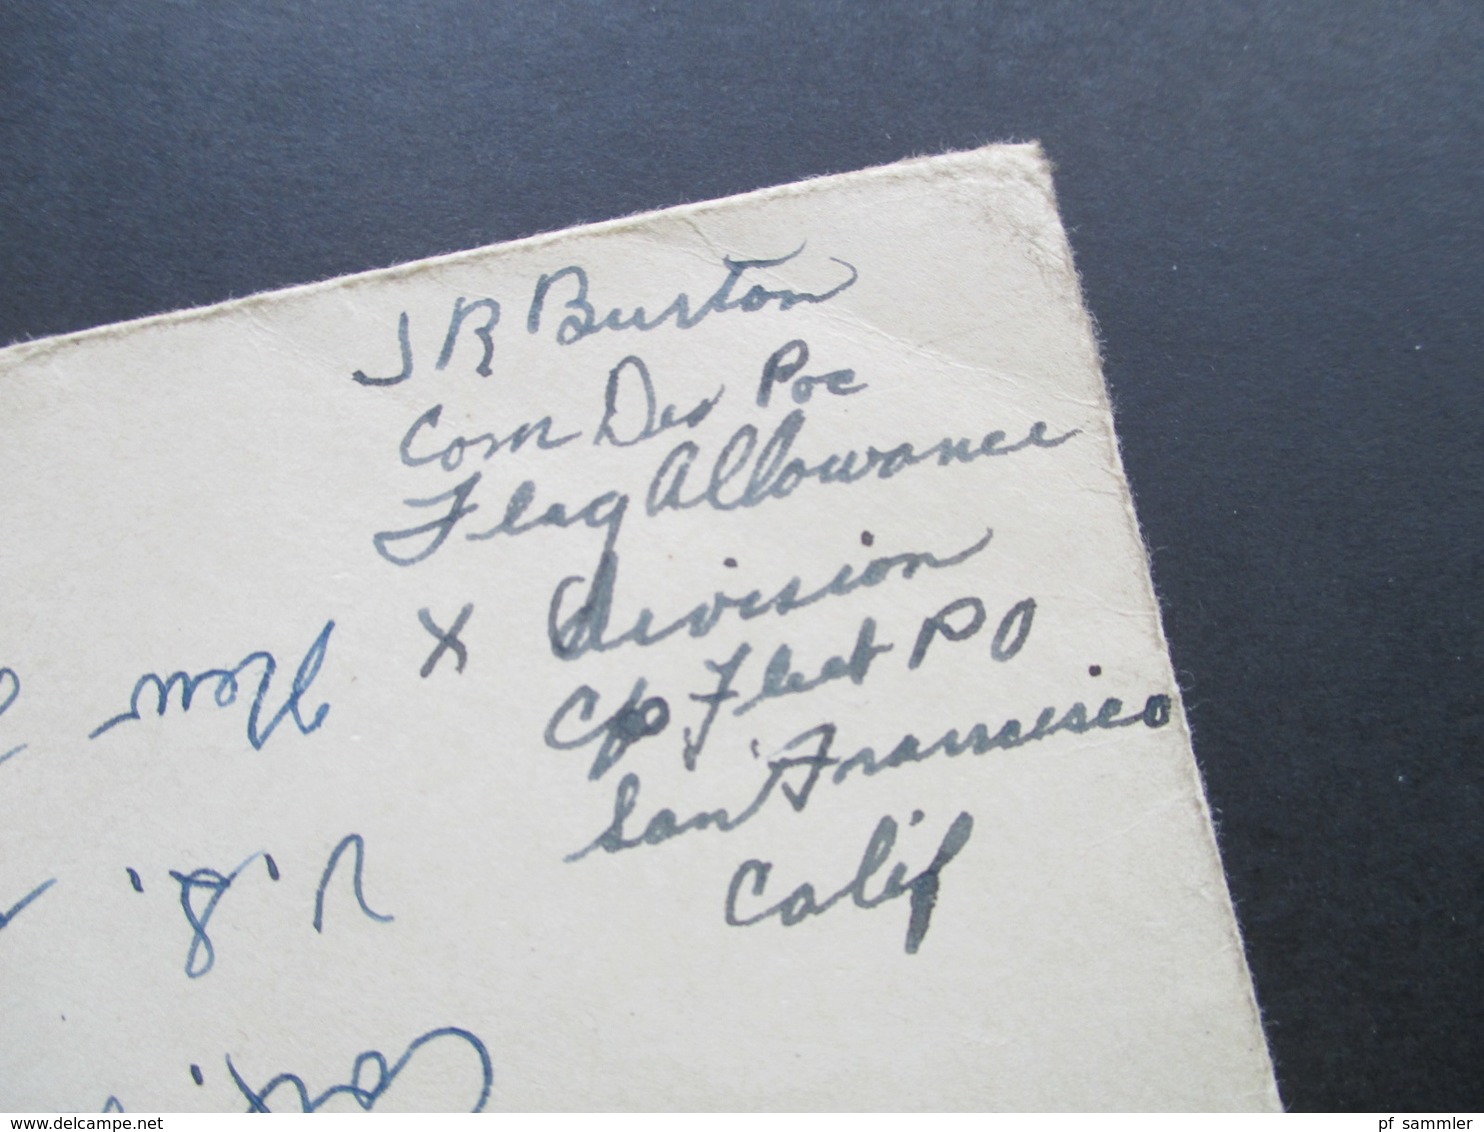 J R Burton
Com Des Poc
Flag Allowance
X division
c/o Fleet P O
San Francisco
Calif
New
U.S.
Capt.
delcampe.net
pf_sammler